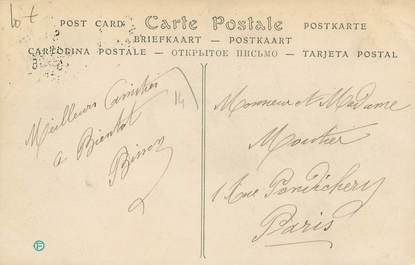 POST CARD Carte Postale POSTKARTE
BRIEFKAART — POSTKAART
CARTOLINA POSTALE — ОТКРЫТОЕ ПИСЬМО — TARJETA POSTAL
14
Meilleurs Amitiés
a Bientot
Monsieur et Madame
Moutier
1 Rue Pondichery
Paris